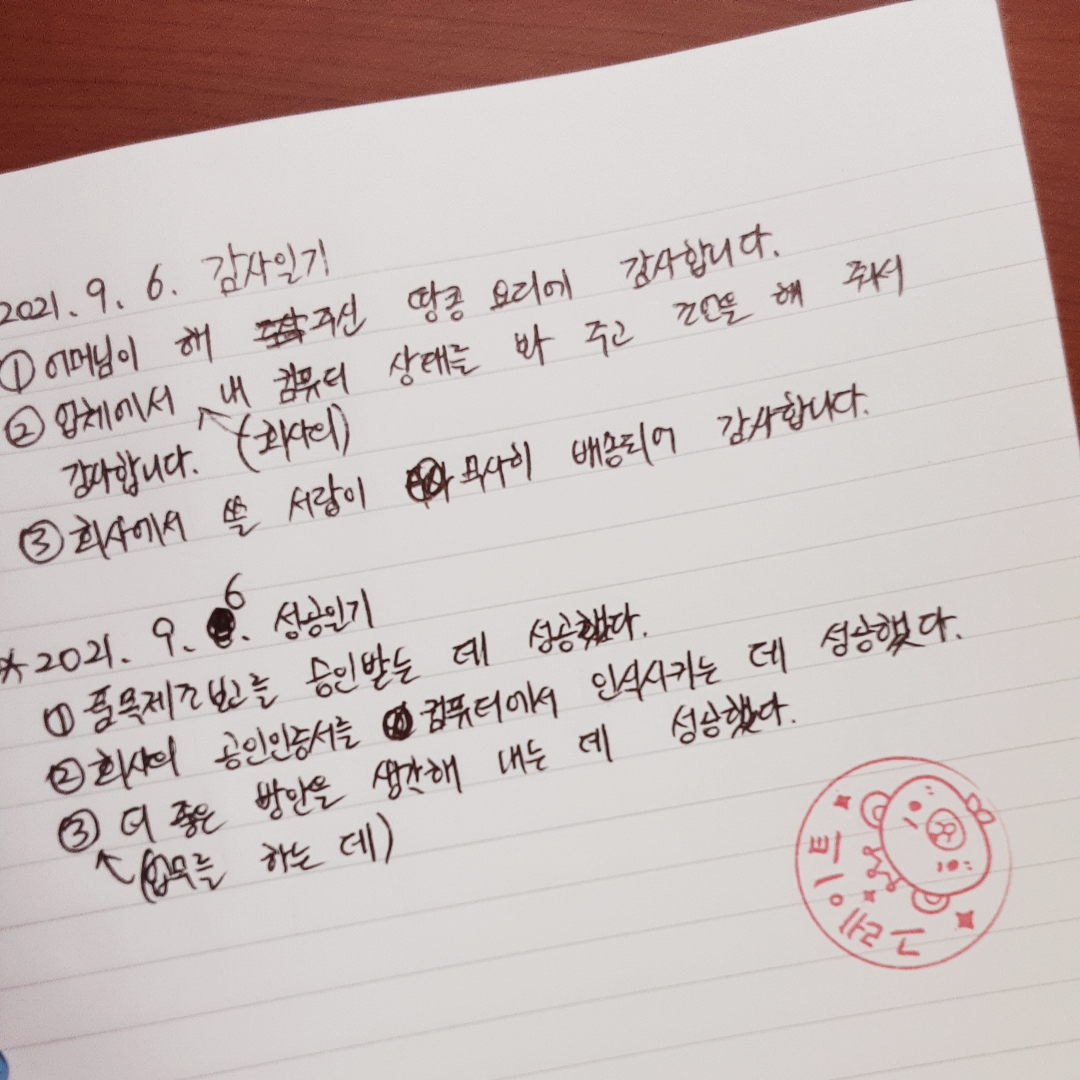 2021. 9. 6. 감사일기
① 어머님이 해 주신 땅콩 요리에 감사합니다.
② 업체에서 내 컴퓨터 상태를 봐 주고 조언을 해 줘서
(회사의)
감사합니다.
③ 회사에서 쓸 서랍이 무사히 배송되어 감사합니다.
※2021. 9. 6. 성공일기
① 품목제조보고를 승인받는 데 성공했다.
② 회사의 공인인증서를 컴퓨터에서 인식시키는 데 성공했다.
③ 더 좋은 방안을 생각해 내는 데 성공했다.
(업무를 하는 데)